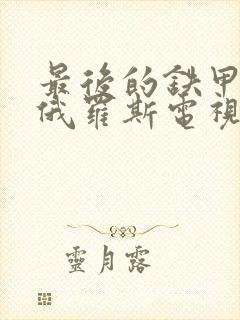 最後的鉄甲
俄羅斯電視
靈月露